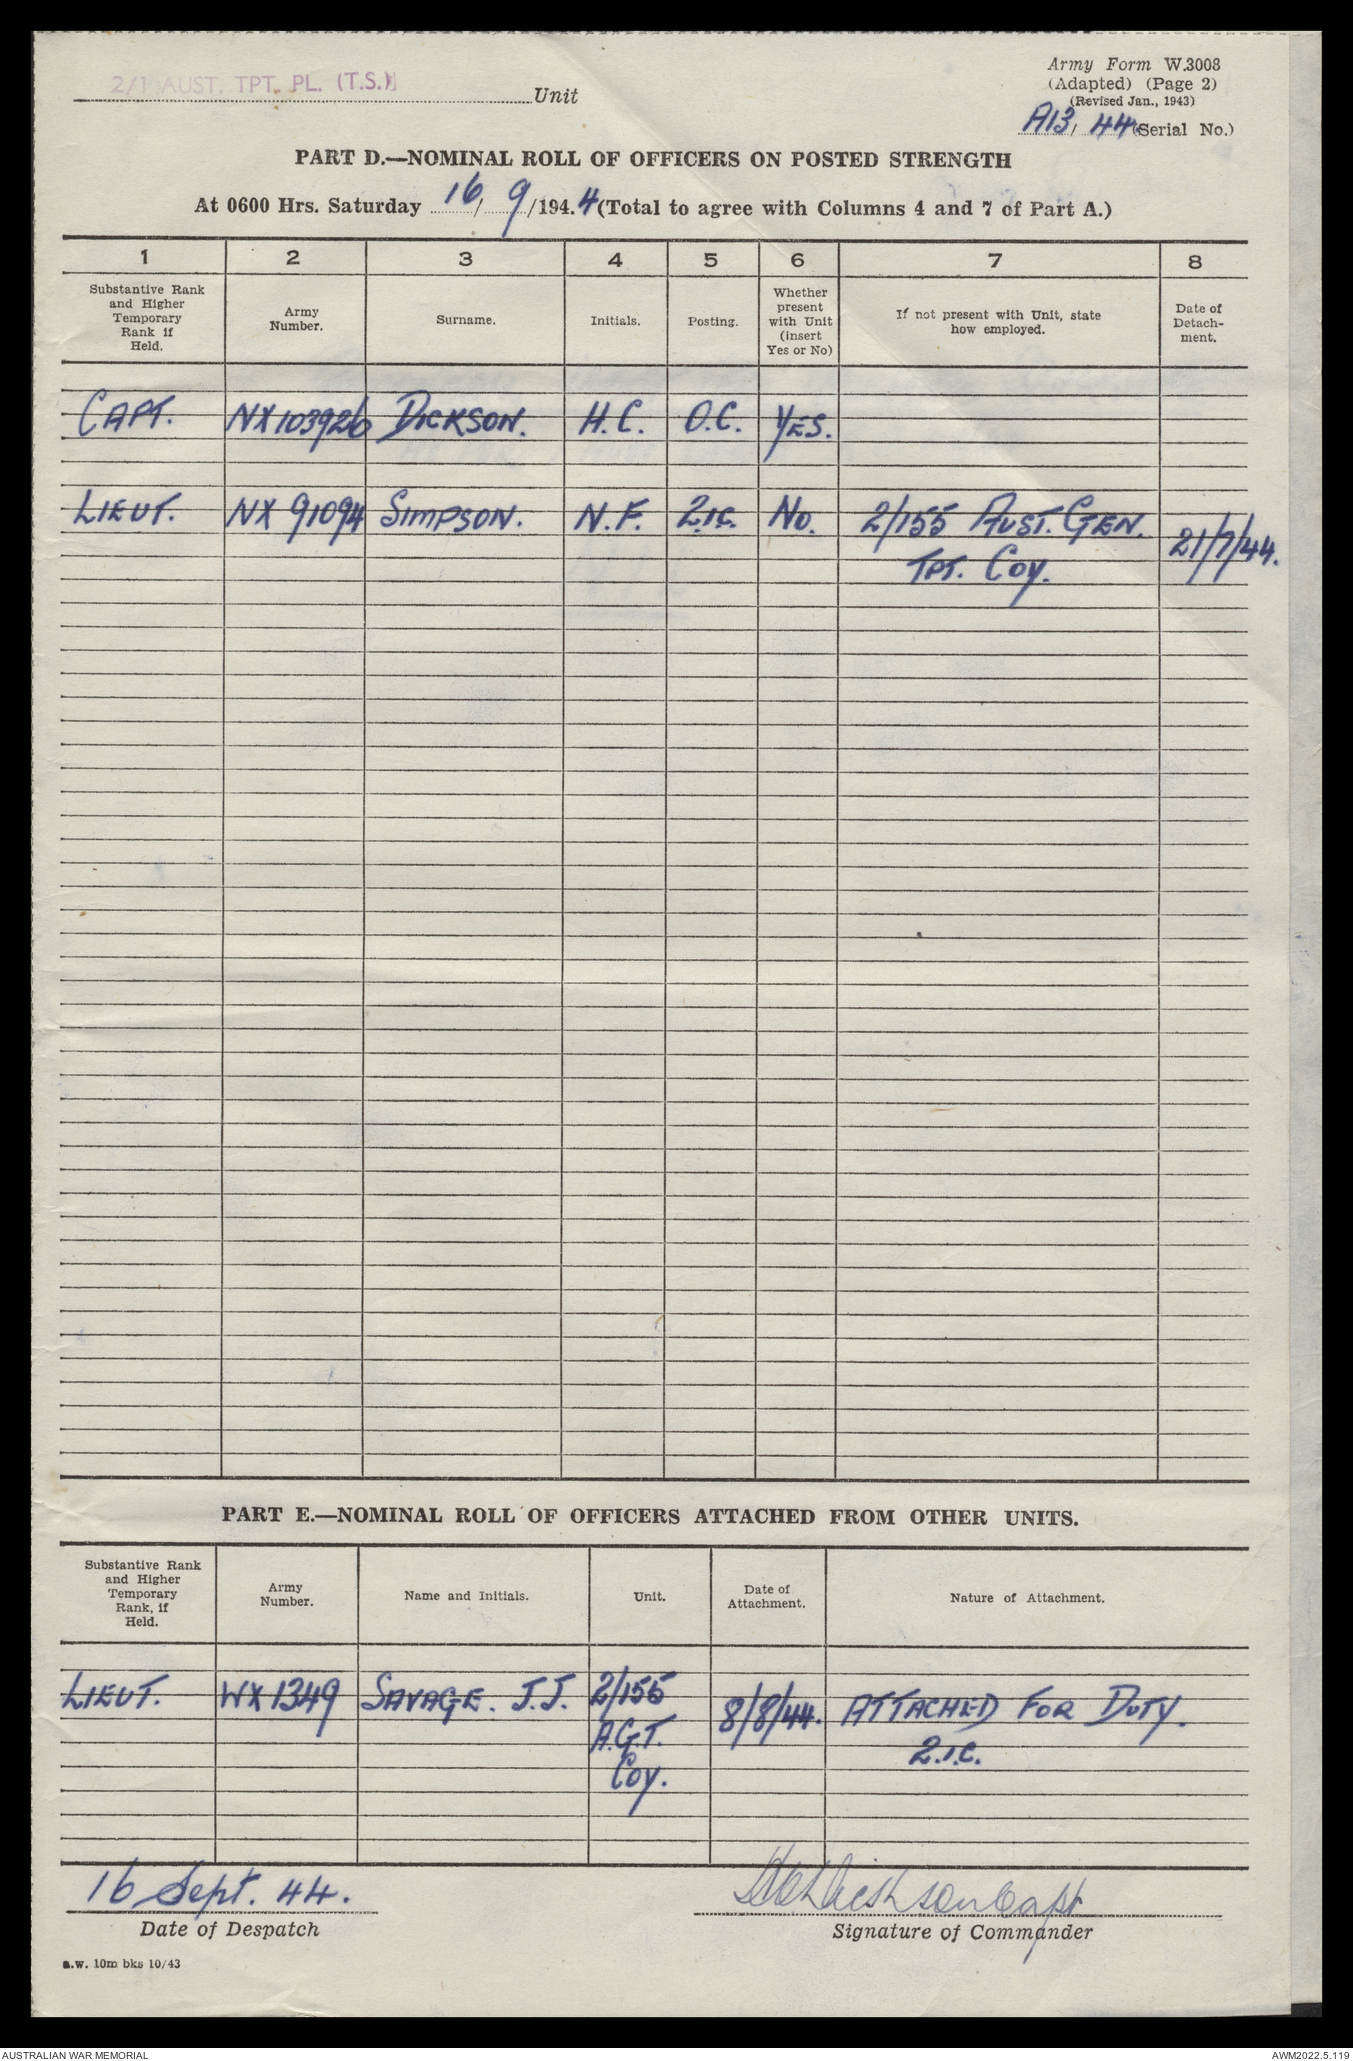 2/1 AUST. TPT. PL. (T.S.) Unit
Army Form W.3008
(Adapted) (Page 2)
(Revised Jan., 1943)
A13/44 (Serial No.)
PART D.—NOMINAL ROLL OF OFFICERS ON POSTED STRENGTH
At 0600 Hrs. Saturday 16/9/1944 (Total to agree with Columns 4 and 7 of Part A.)
1 2 3 4 5 6 7 8
Substantive Rank and Higher Temporary Rank if Held. Army Number. Surname. Initials. Posting. Whether present with Unit (insert Yes or No) If not present with Unit, state how employed. Date of Detach-ment.
CAPT. NX103926 DICKSON. H.C. O.C. YES.
LIEUT. NX 91094 SIMPSON. N.F. 2.I.C. NO. 2/155 AUST. GEN. 21/7/44.
TPT. COY.
PART E.—NOMINAL ROLL OF OFFICERS ATTACHED FROM OTHER UNITS.
Substantive Rank and Higher Temporary Rank, if Held. Army Number. Name and Initials. Unit. Date of Attachment. Nature of Attachment.
LIEUT. WX1349 SAVAGE. J.J. 2/155 8/8/44. ATTACHED FOR DUTY.
A.G.T. 2.I.C.
COY.
16 Sept. 44. Dickson Capt
Date of Despatch Signature of Commander
a.w. 10m bks 10/43
AUSTRALIAN WAR MEMORIAL AWM2022.5.119